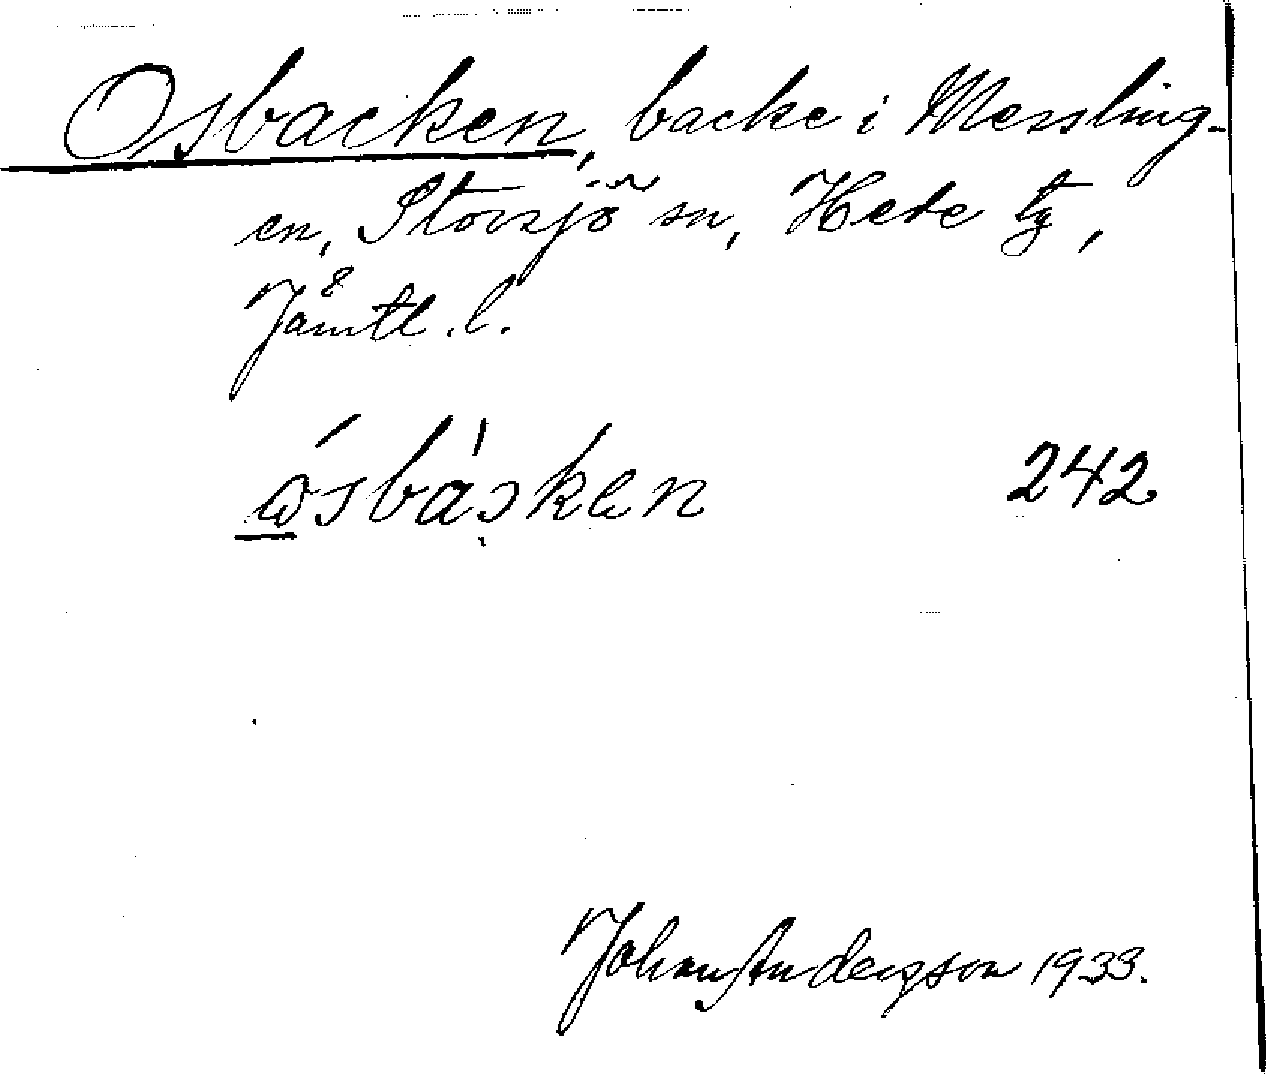 Osbacken, backe i Messling-
en, Storsjö sn, Hede tg,
Jämtl. l.
ósbàsken 242
Johan Andersson 1933.